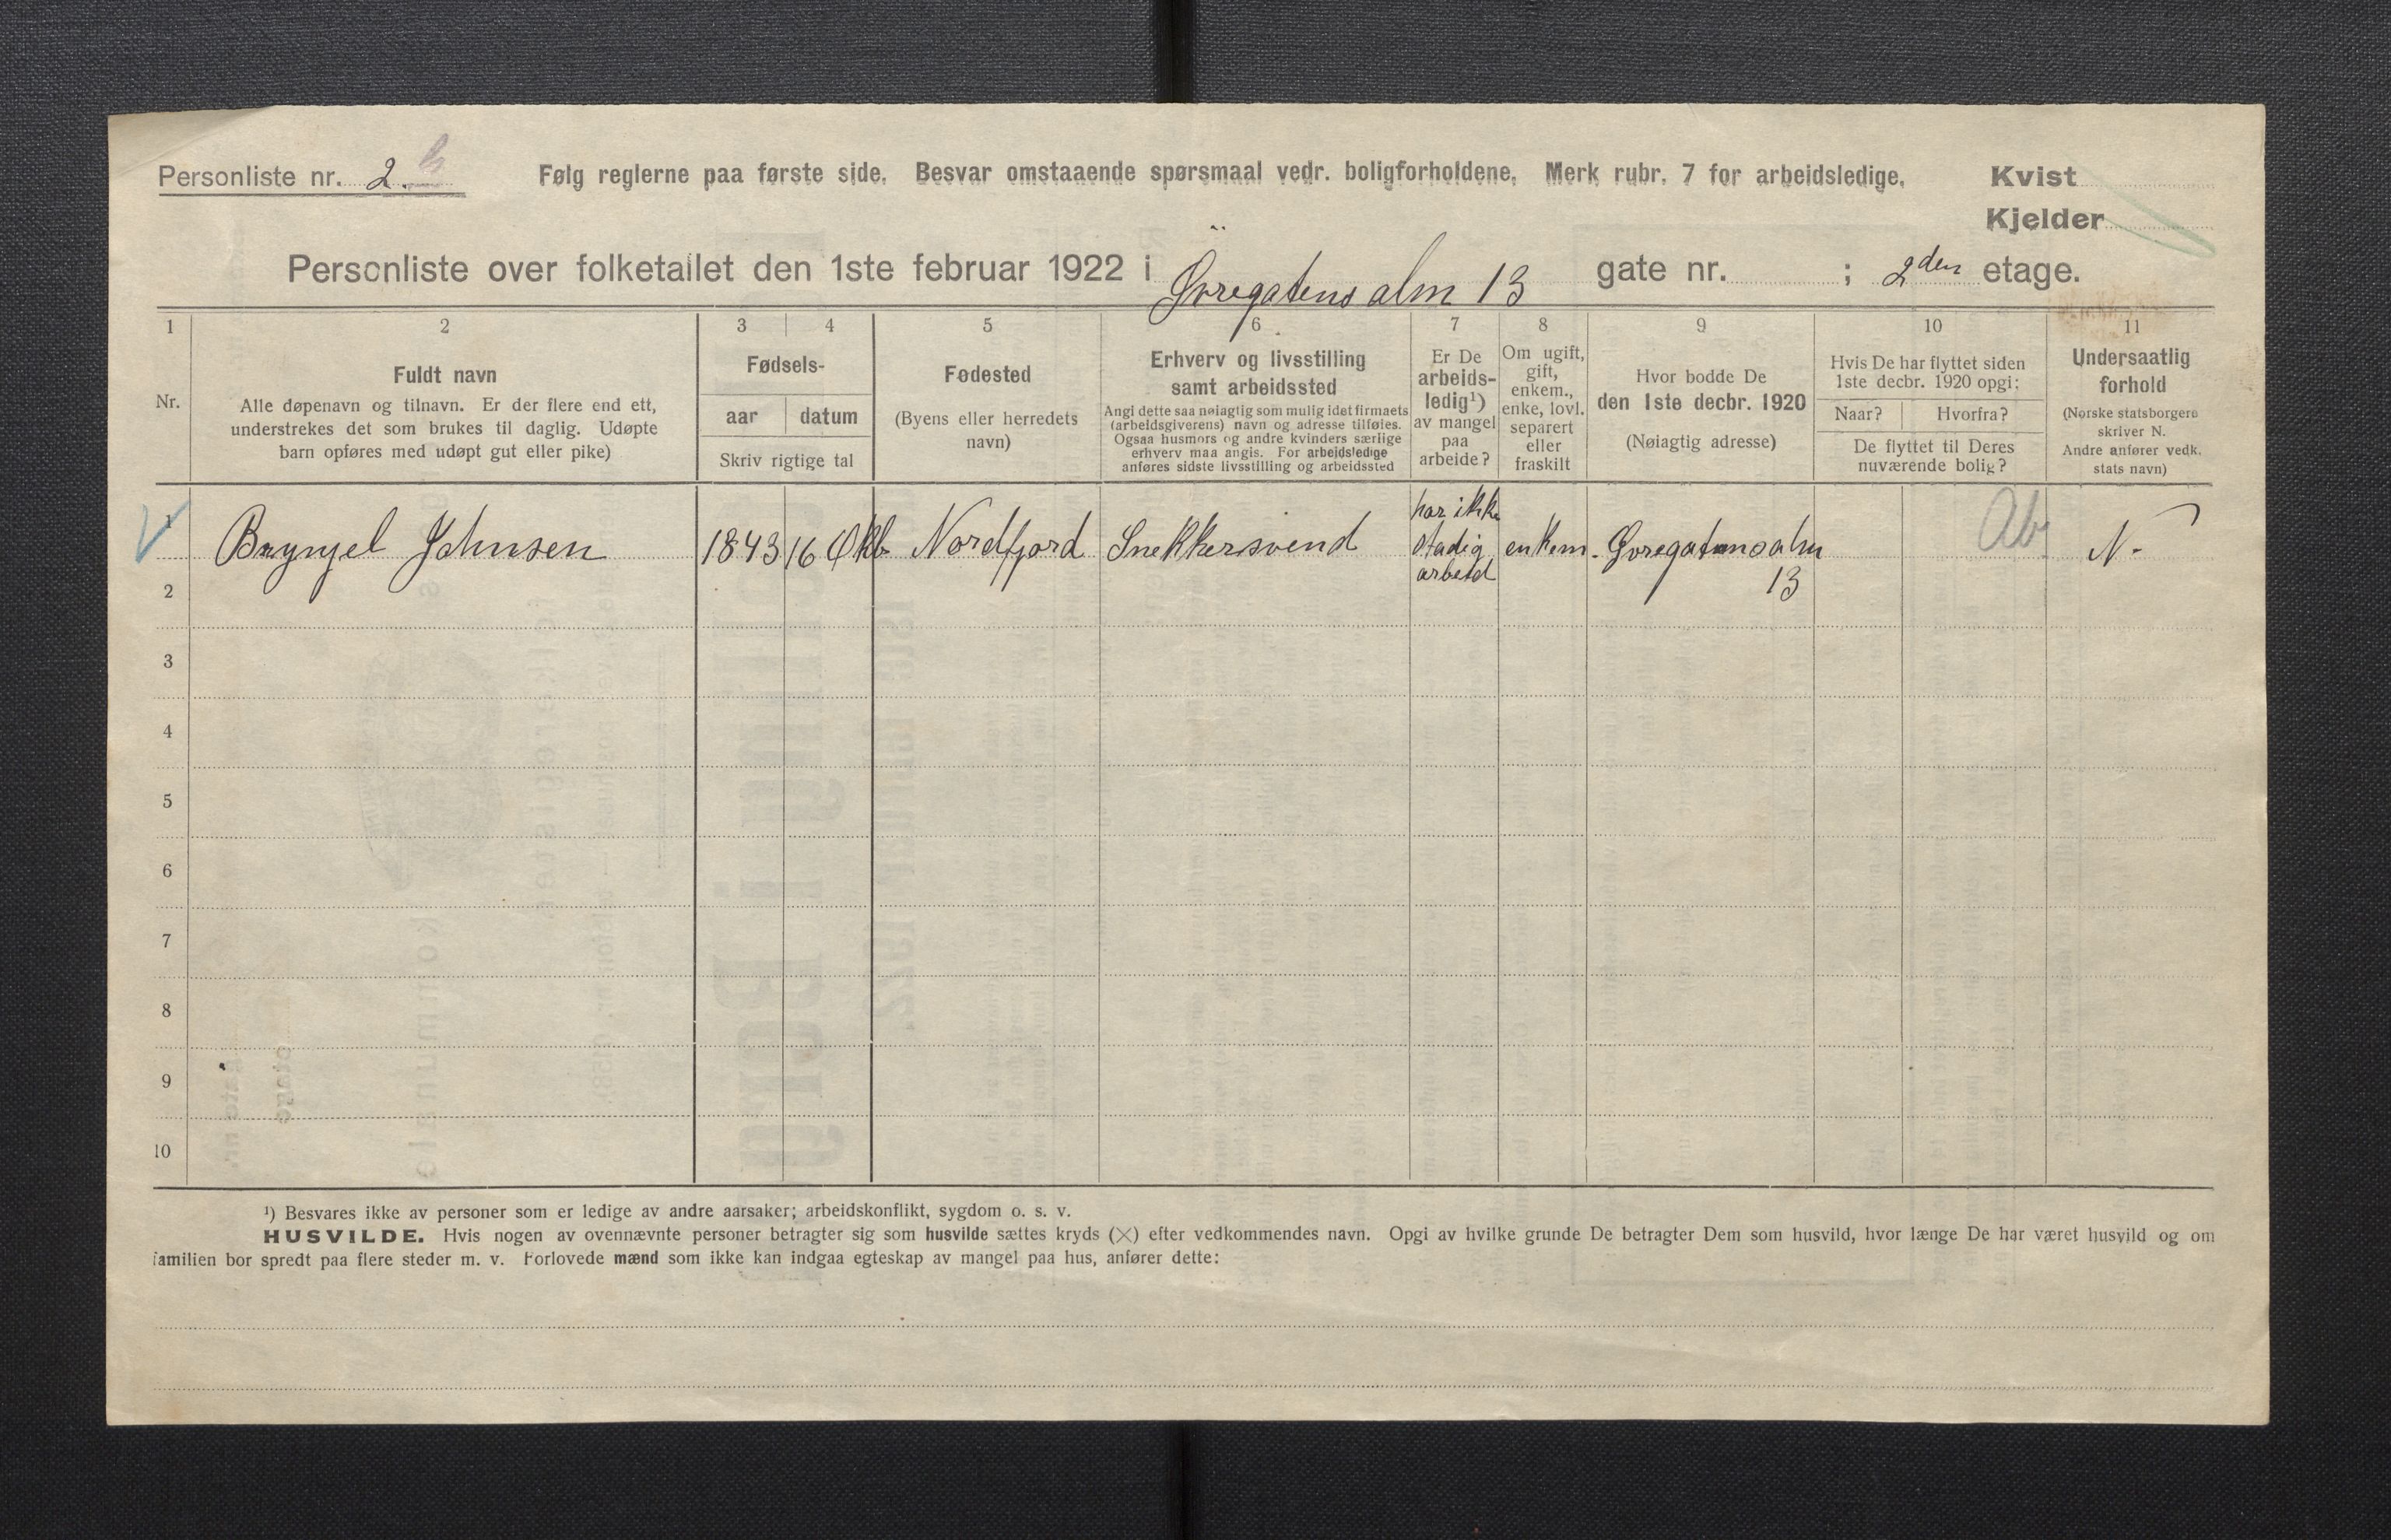 Personliste nr. 2. b
Følg reglerne paa første side. Besvar omstaaende spørsmaal vedr. boligforholdene. Merk rubr. 7 for arbeidsledige.
Kvist
Kjelder
Personliste over folketallet den 1ste februar 1922 i Øvregatens alm 13 gate nr. ; 2den etage.
1 2 3 4 5 6 7 8 9 10 11
Nr.
Fuldt navn
Alle døpenavn og tilnavn. Er der flere end ett,
understrekes det som brukes til daglig. Udøpte
barn opføres med udøpt gut eller pike)
Fødsels-
aar datum
Skriv rigtige tal
Fødested
(Byens eller herredets
navn)
Erhverv og livsstilling
samt arbeidssted
Angi dette saa nøiagtig som mulig idet firmaets
(arbeidsgiverens) navn og adresse tilføies.
Ogsaa husmors og andre kvinders særlige
erhverv maa angis. For arbeidsledige
anføres sidste livsstilling og arbeidssted
Er De
arbeids-
ledig¹)
av mangel
paa
arbeide?
Om ugift,
gift,
enkem.,
enke, lovl.
separert
eller
fraskilt
Hvor bodde De
den 1ste decbr. 1920
(Nøiagtig adresse)
Hvis De har flyttet siden
1ste decbr. 1920 opgi:
Naar? Hvorfra?
De flyttet til Deres
nuværende bolig?
Undersaatlig
forhold
(Norske statsborgere
skriver N.
Andre anfører vedk.
stats navn)
1 Bryngel Johnsen 1843 16 Okb. Nordfjord Snekkersvend har ikke stadig arbeid enkem. Øvregatens alm 13 Ab N.
2
3
4
5
6
7
8
9
10
¹) Besvares ikke av personer som er ledige av andre aarsaker; arbeidskonflikt, sygdom o. s. v.
HUSVILDE. Hvis nogen av ovennævnte personer betragter sig som husvilde sættes kryds (×) efter vedkommendes navn. Opgi av hvilke grunde De betragter Dem som husvild, hvor længe De har været husvild og om
familien bor spredt paa flere steder m. v. Forlovede mænd som ikke kan indgaa egteskap av mangel paa hus, anfører dette: